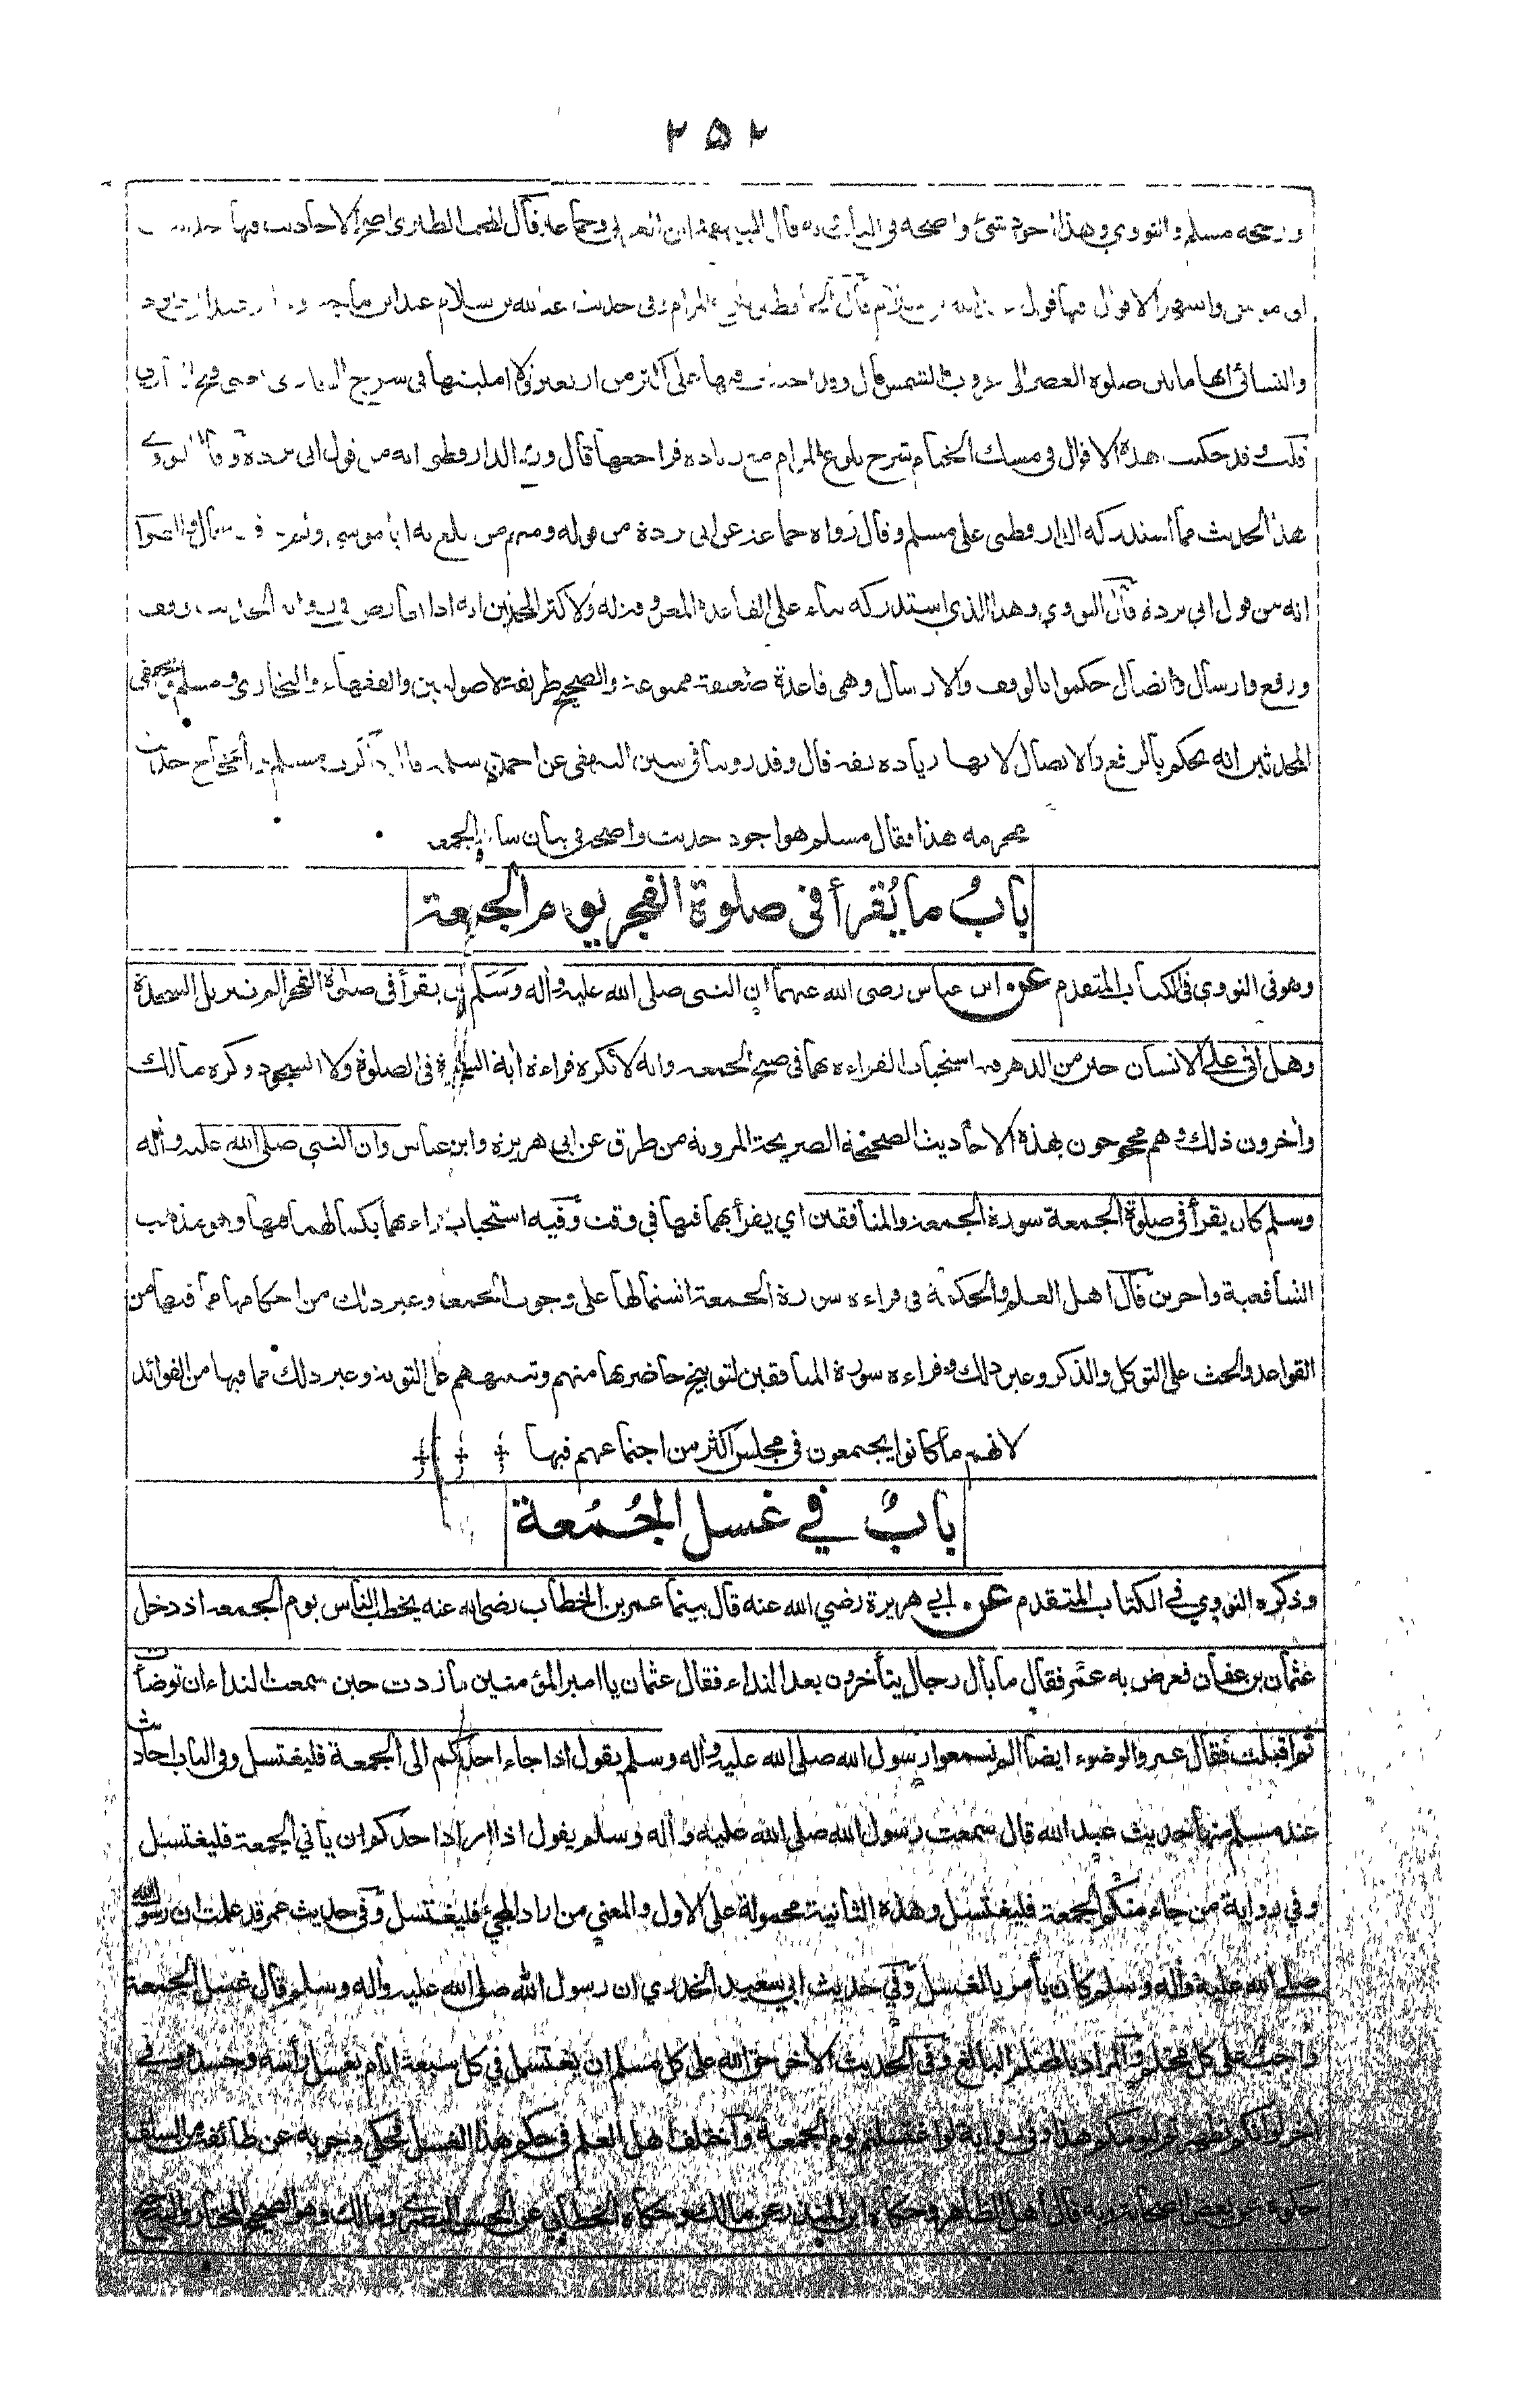 ٢٥٢
ورجحه مسلم والنووي وهذا اجود شئ واصحه في الباب قال البيهقي وابن العربي وجماعة قال المحب الطبري اصح الاحاديث فيها حديث
ابي موسى واشهر الاقوال فيها قول عبد الله بن سلام قال الحافظ في بلوغ المرام وفي حديث عبد الله بن سلام عند ابن ماجه وابي داود
والنسائي انها ما بين صلوة العصر الى غروب الشمس قال على اكثر من اربعين قولا امليتها في شرح البخاري انتهى
قلت وقد حكيت هذه الاقوال في مسك الختام شرح بلوغ المرام مع زيادة فراجعها قال ورجح الدارقطني انه من قول ابي بردة وقال النووي
هذا الحديث مما استدركه الدارقطني على مسلم وقال رواه جماعة عن ابي بردة من قوله ومنهم من بلغ به ابا موسى ولم قال والصواب
انه من قول ابي بردة قال النووي وهذا الذي استدركه بناء على القاعدة المعروفة له ولاكثر المحدثين انه اذا تعارض في رواية الحديث وقف
ورفع وارسال واتصال حكموا بالوقف والارسال وهي قاعدة ضعيفة ممنوعة والصحيح طريقة الاصوليين والفقهاء والبخاري ومسلم ومحققي
المحدثين انه يحكم بالرفع والاتصال لانها زيادة ثقة قال وقد روينا في سنن البيهقي عن احمد بن سلمة قال ذاكرت مسلم بن الحجاج حديث
مخرمة هذا فقال مسلم هو اجود حديث واصحه في بيان ساعة الجمعة
بابُ ما يُقرأ في صلوة الفجر يوم الجمعة
وهو في النووي في الكتاب المتقدم عن ابن عباس رضي الله عنهما ان النبي صلى الله عليه وآله وسَلَّم كان يقرأ في صلوة الفجر الم تنزيل السجدة
وهل اتى على الانسان حين من الدهر فيه استحباب القراءة بهما في صبح الجمعة وانه لا تكره قراءة اية السجدة في الصلوة ولا السجود وكره مالك
وآخرون ذلك وهم محجوجون بهذه الاحاديث الصحيحة الصريحة المروية من طرق عن ابي هريرة وابن عباس وان النبي صلى الله عليه وآله
وسلم كان يقرأ في صلوة الجمعة سورة الجمعة والمنافقين اي يقرأ بهما فيها في وقت وفيه استحباب قراءتهما بكمالهما فيها وهو مذهب
الشافعية وآخرين قال اهل العلم والحكمة في قراءة سورة الجمعة اشتمالها على وجوب الجمعة وغير ذلك من احكامها مما فيها من
القواعد والحث على التوكل والذكر وغير ذلك وقراءة سورة المنافقين لتوبيخ حاضريها منهم وتنبيههم على التوبة وغير ذلك مما فيها من الفوائد
لانهم ما كانوا يجتمعون في مجلس اكثر من اجتماعهم فيها
بابٌ في غسل الجُمُعة
وذكره النووي في الكتاب المتقدم عن ابي هريرة رضي الله عنه قال بينما عمر بن الخطاب رضي الله عنه يخطب الناس يوم الجمعة اذ دخل
عثمان بن عفان فعرض به عمر فقال ما بال رجال يتأخرون بعد النداء فقال عثمان يا امير المؤمنين ما زدت حين سمعت النداء ان توضأت
ثم اقبلت فقال عمر والوضوء ايضا الم تسمعوا رسول الله صلى الله عليه وآله وسلم يقول اذا جاء احدكم الى الجمعة فليغتسل وفي الباب احاديث
عند مسلم منها حديث عبد الله قال سمعت رسول الله صلى الله عليه وآله وسلم يقول اذا اراد احدكم ان يأتي الجمعة فليغتسل
وفي رواية من جاء منكم الجمعة فليغتسل وهذه الثانية محمولة على الاول والمعني من اراد المجئ فليغتسل وفي حديث عمر قد علمت ان رسول الله
صلى الله عليه وآله وسلم كان يأمر بالغسل وفي حديث ابي سعيد الخدري ان رسول الله صلى الله عليه وآله وسلم قال غسل الجمعة
واجب على كل محتلم والمراد بالمحتلم البالغ وفي الحديث الآخر حق الله على كل مسلم ان يغتسل في كل سبعة ايام يغسل رأسه وجسده وفي
آخر لو انكم تطهرتم ليومكم هذا وفي رواية لو اغتسلتم يوم الجمعة واختلف اهل العلم في حكم هذا الغسل فحكي وجوبه عن طائفة من السلف
حكوه عن بعض الصحابة وبه قال اهل الظاهر وحكاه ابن المنذر عن مالك وحكاه الخطابي عن الحسن البصري ومالك وهو الصحيح المختار